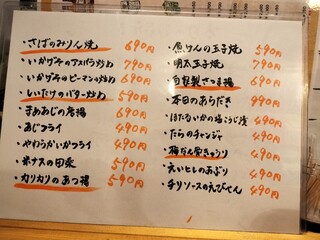 ・さばのみりん焼 690円
・いかゲソのアスパラ炒め 790円
・いかゲソのピーマンの炒め 690円
・しいたけのバター炒め 590円
・きめあじの唐揚 690円
・あじフライ 490円
・やわらかいかフライ 490円
・ボナスの田楽 590円
・カリカリのあつ揚 590円
・魚けんの玉子焼 590円
・明太玉子焼 790円
・自家製さつま揚 690円
・本日のあらだき 990円
・ほたるいかの塩こうじ漬 490円
・たらのチャンジャ 490円
・梅なん堂きゅうり 490円
・えいひれのあぶり 490円
・チリソースのえびせん 490円